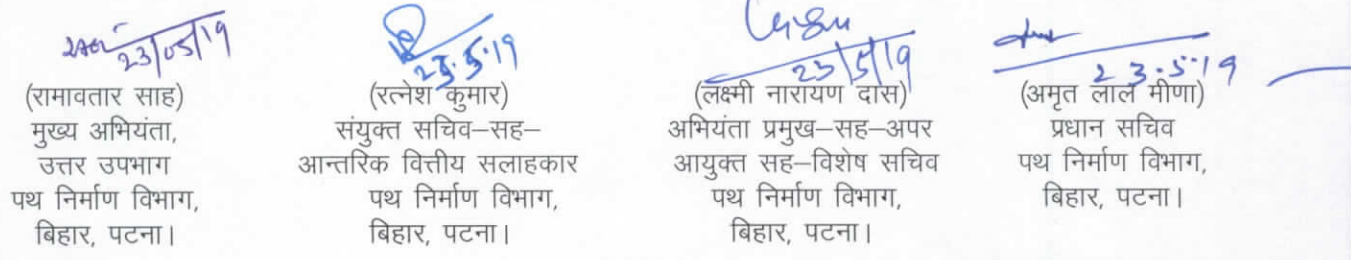 23/05/19
(रामावतार साह)
मुख्य अभियंता,
उत्तर उपभाग
पथ निर्माण विभाग,
बिहार, पटना।
23.5.19
(रत्नेश कुमार)
संयुक्त सचिव–सह–
आन्तरिक वित्तीय सलाहकार
पथ निर्माण विभाग,
बिहार, पटना।
23/5/19
(लक्ष्मी नारायण दास)
अभियंता प्रमुख–सह–अपर
आयुक्त सह–विशेष सचिव
पथ निर्माण विभाग,
बिहार, पटना।
23.5.19
(अमृत लाल मीणा)
प्रधान सचिव
पथ निर्माण विभाग,
बिहार, पटना।